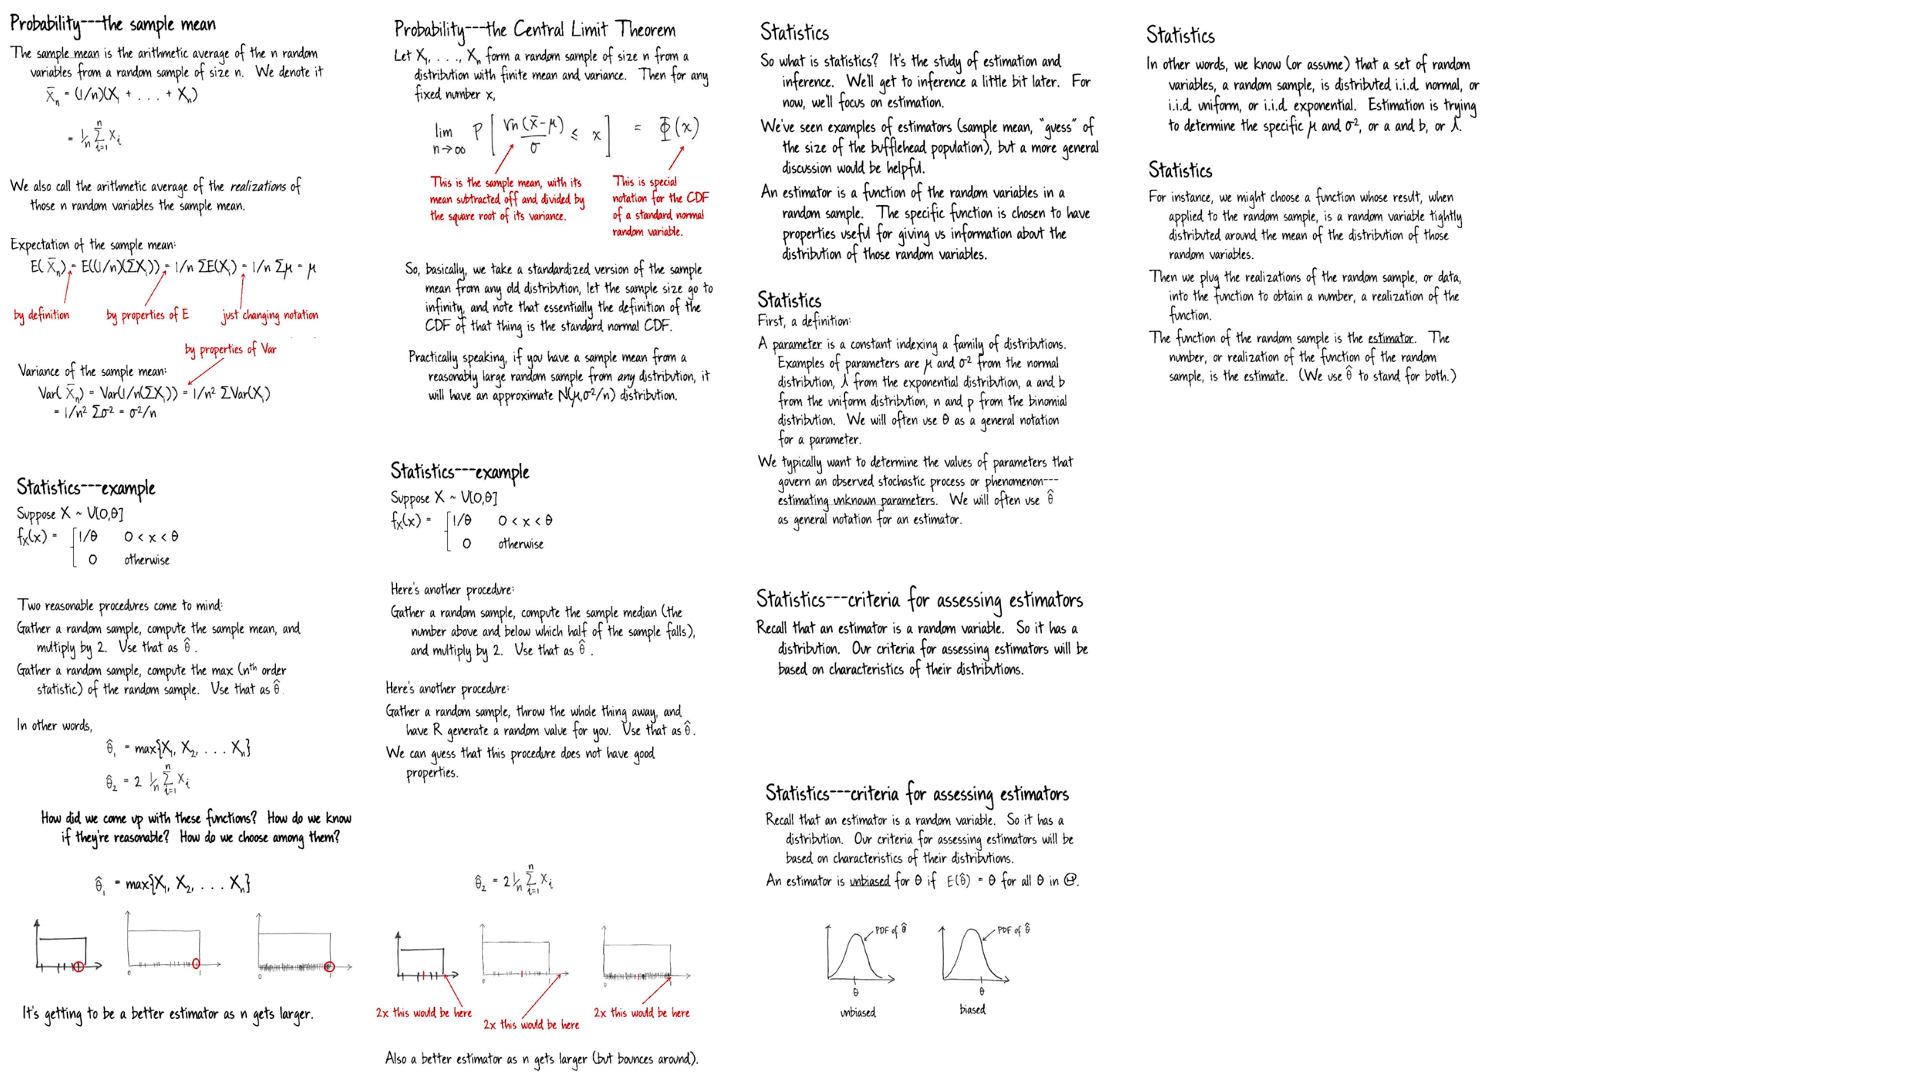 Probability---the sample mean
The sample mean is the arithmetic average of the n random
variables from a random sample of size n. We denote it
X̄ₙ = (1/n)(X₁ + . . . + Xₙ)
= 1/n Σᵢ₌₁ⁿ Xᵢ
We also call the arithmetic average of the realizations of
those n random variables the sample mean.
Expectation of the sample mean:
E( X̄ₙ) = E((1/n)(ΣXᵢ)) = 1/n ΣE(Xᵢ) = 1/n Σμ = μ
by definition
by properties of E
just changing notation
by properties of Var
Variance of the sample mean:
Var( X̄ₙ) = Var(1/n(ΣXᵢ)) = 1/n² ΣVar(Xᵢ)
= 1/n² Σσ² = σ²/n
Statistics---example
Suppose X ~ U[0,θ]
fₓ(x) = 1/θ 0 < x < θ
0 otherwise
Two reasonable procedures come to mind:
Gather a random sample, compute the sample mean, and
multiply by 2. Use that as θ̂ .
Gather a random sample, compute the max (nᵗʰ order
statistic) of the random sample. Use that as θ̂ .
In other words,
θ̂₁ = max{X₁, X₂, . . . Xₙ}
θ̂₂ = 2 1/n Σᵢ₌₁ⁿ Xᵢ
How did we come up with these functions? How do we know
if they're reasonable? How do we choose among them?
θ̂₁ = max{X₁, X₂, . . . Xₙ}
0
1
0
1
It's getting to be a better estimator as n gets larger.
Probability---the Central Limit Theorem
Let X₁, . . ., Xₙ form a random sample of size n from a
distribution with finite mean and variance. Then for any
fixed number x,
lim n→∞ P[ √n (x̄-μ)/σ ≤ x ] = Φ(x)
This is the sample mean, with its
mean subtracted off and divided by
the square root of its variance.
This is special
notation for the CDF
of a standard normal
random variable.
So, basically, we take a standardized version of the sample
mean from any old distribution, let the sample size go to
infinity, and note that essentially the definition of the
CDF of that thing is the standard normal CDF.
Practically speaking, if you have a sample mean from a
reasonably large random sample from any distribution, it
will have an approximate N(μ,σ²/n) distribution.
Statistics---example
Suppose X ~ U[0,θ]
fₓ(x) = 1/θ 0 < x < θ
0 otherwise
Here's another procedure:
Gather a random sample, compute the sample median (the
number above and below which half of the sample falls),
and multiply by 2. Use that as θ̂ .
Here's another procedure:
Gather a random sample, throw the whole thing away, and
have R generate a random value for you. Use that as θ̂ .
We can guess that this procedure does not have good
properties.
θ̂₂ = 2 1/n Σᵢ₌₁ⁿ Xᵢ
0
1
0
1
2x this would be here
2x this would be here
2x this would be here
Also a better estimator as n gets larger (but bounces around).
Statistics
So what is statistics? It's the study of estimation and
inference. We'll get to inference a little bit later. For
now, we'll focus on estimation.
We've seen examples of estimators (sample mean, "guess" of
the size of the bufflehead population), but a more general
discussion would be helpful.
An estimator is a function of the random variables in a
random sample. The specific function is chosen to have
properties useful for giving us information about the
distribution of those random variables.
Statistics
First, a definition:
A parameter is a constant indexing a family of distributions.
Examples of parameters are μ and σ² from the normal
distribution, λ from the exponential distribution, a and b
from the uniform distribution, n and p from the binomial
distribution. We will often use θ as a general notation
for a parameter.
We typically want to determine the values of parameters that
govern an observed stochastic process or phenomenon---
estimating unknown parameters. We will often use θ̂
as general notation for an estimator.
Statistics---criteria for assessing estimators
Recall that an estimator is a random variable. So it has a
distribution. Our criteria for assessing estimators will be
based on characteristics of their distributions.
Statistics---criteria for assessing estimators
Recall that an estimator is a random variable. So it has a
distribution. Our criteria for assessing estimators will be
based on characteristics of their distributions.
An estimator is unbiased for θ if E(θ̂) = θ for all θ in Θ.
PDF of θ̂
PDF of θ̂
θ
θ
unbiased
biased
Statistics
In other words, we know (or assume) that a set of random
variables, a random sample, is distributed i.i.d. normal, or
i.i.d. uniform, or i.i.d. exponential. Estimation is trying
to determine the specific μ and σ², or a and b, or λ.
Statistics
For instance, we might choose a function whose result, when
applied to the random sample, is a random variable tightly
distributed around the mean of the distribution of those
random variables.
Then we plug the realizations of the random sample, or data,
into the function to obtain a number, a realization of the
function.
The function of the random sample is the estimator. The
number, or realization of the function of the random
sample, is the estimate. (We use θ̂ to stand for both.)